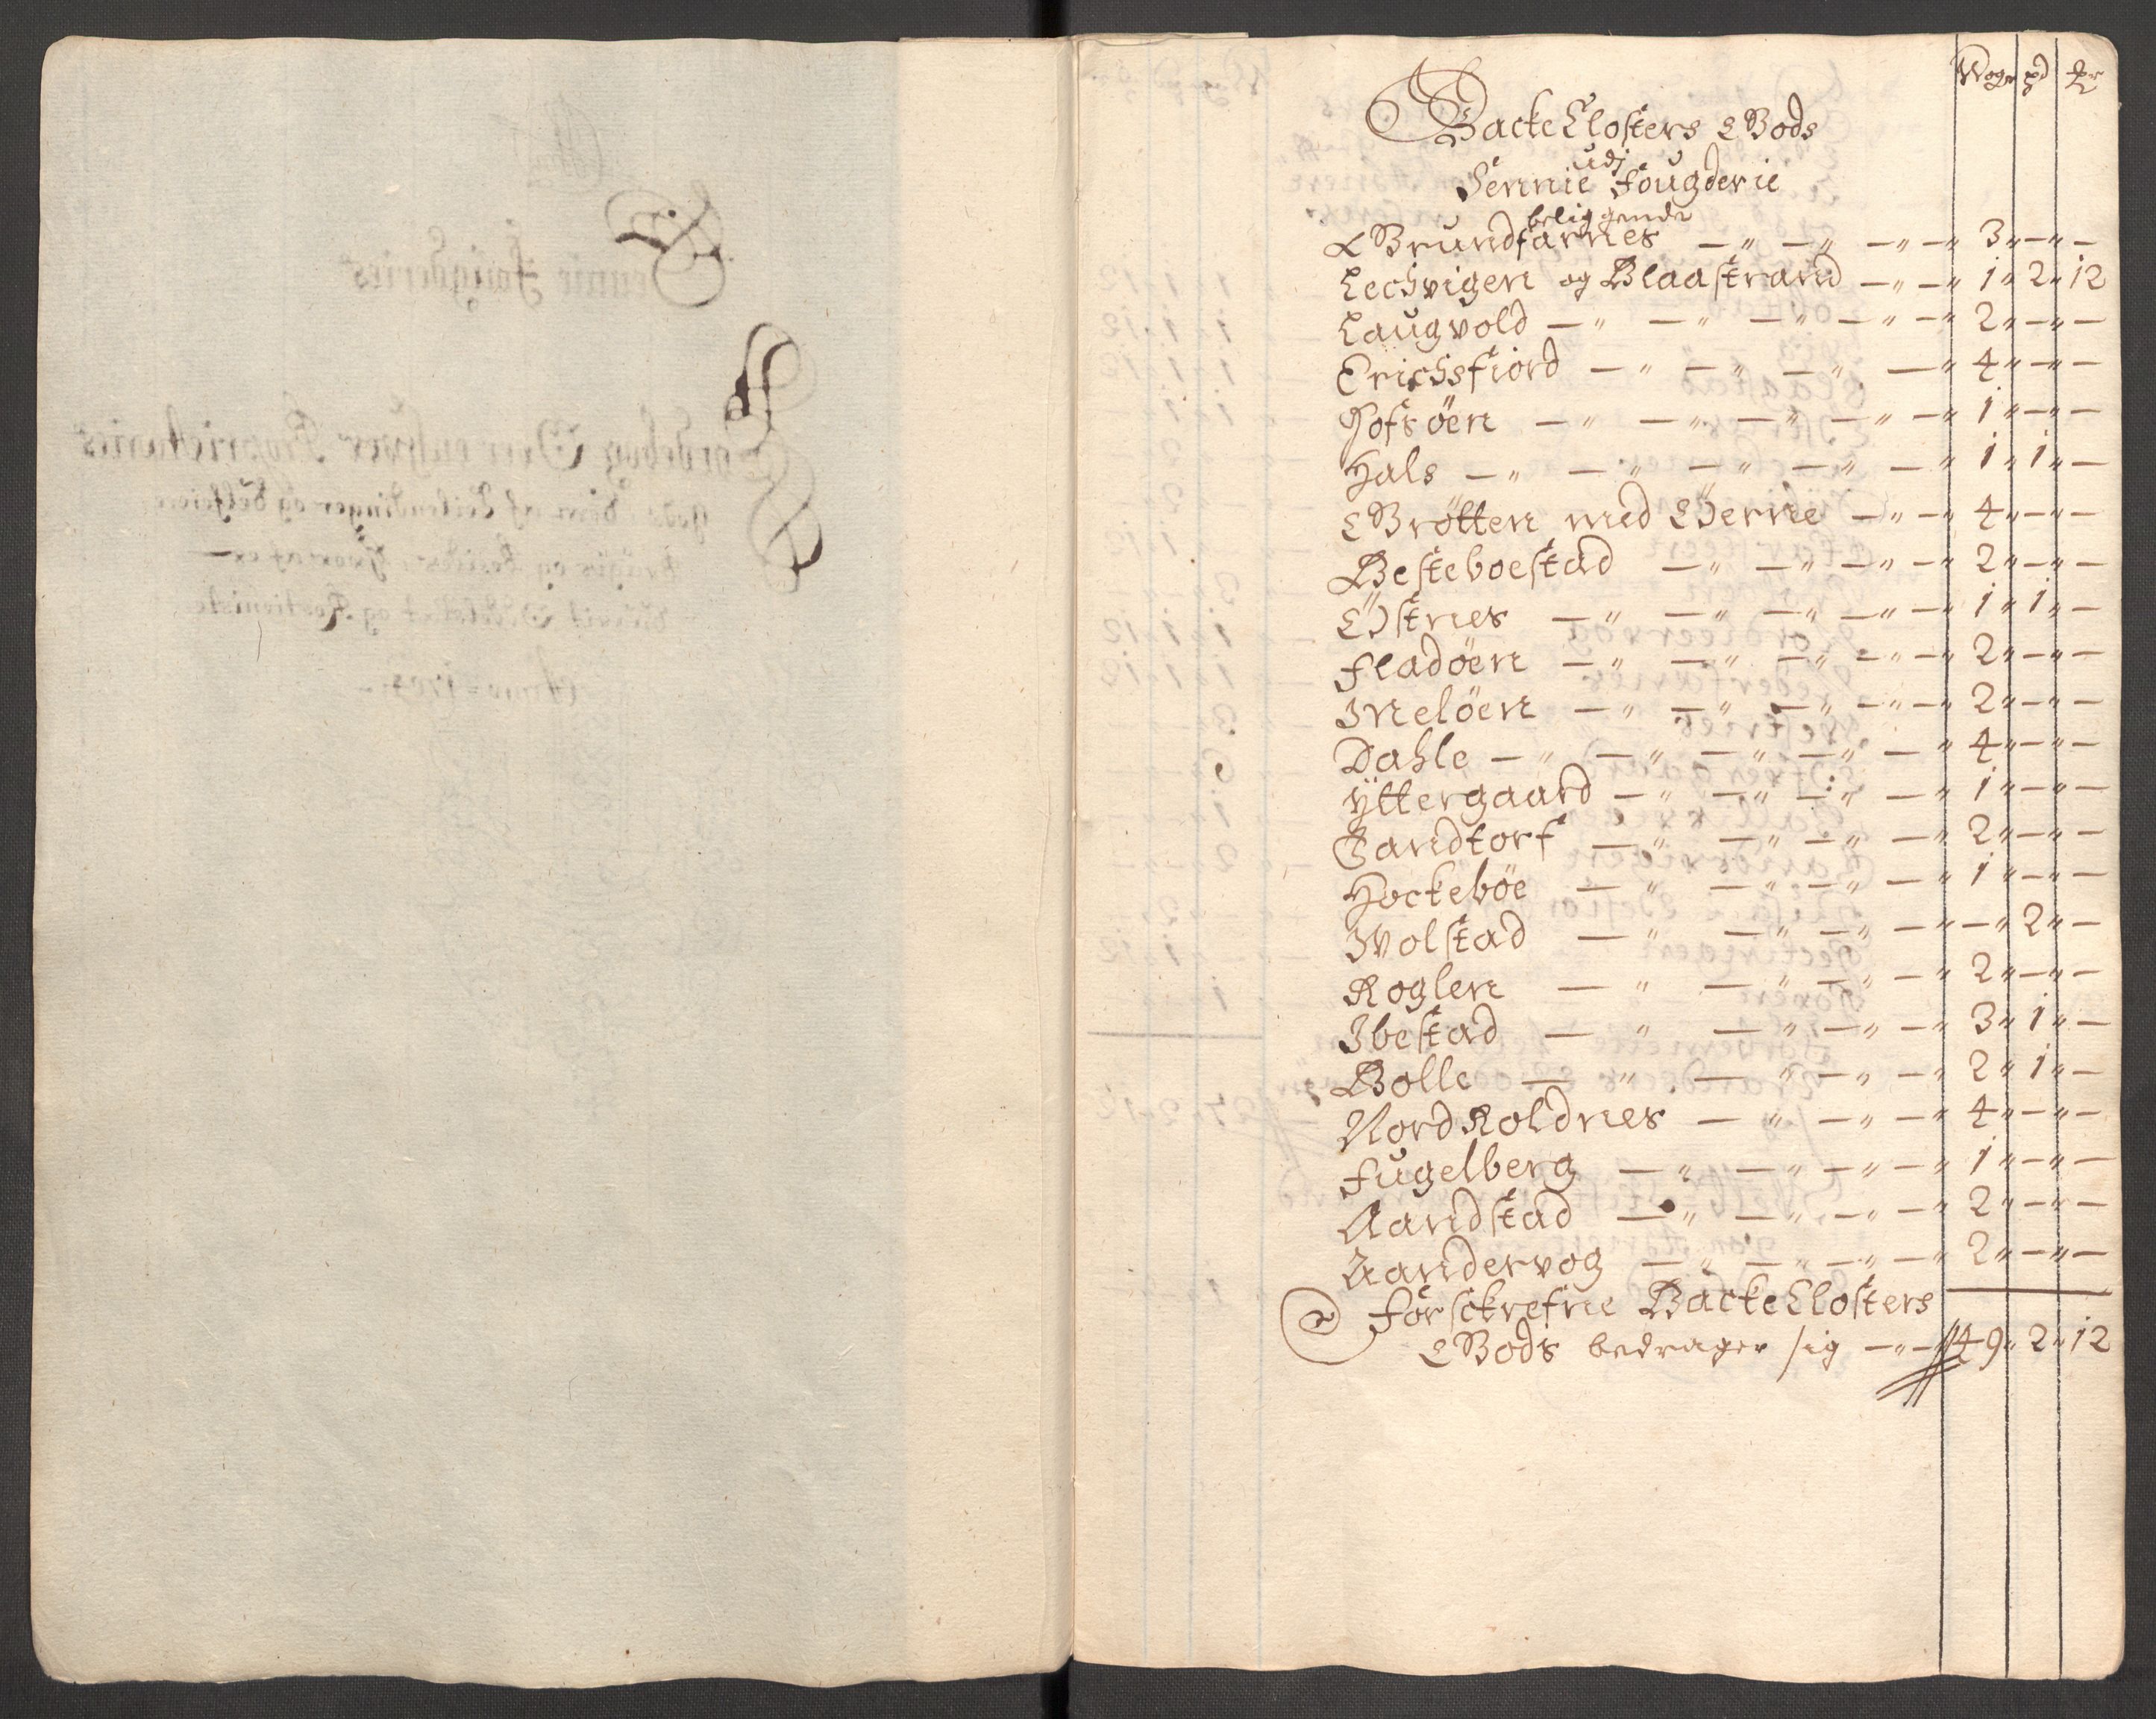 Woger pd ℔r
Backe Closters Gods
udj
Sennie Fougderie
beliggende
Grundfarnes — " — " — " — " 3 " — " —
Lechvigen og Blaastrand — " — " 1 " 2 " 12
Laugvold — " — " — " — " — " 2 " — " —
Erichsfiord — " — " — " — " 4 " — " —
Hofsöen — " — " — " — " — " 1 " — " —
Hals — " — " — " — " — " 1 " 1 " —
Grötten med Ederne — " — " 4 " — " —
Besteboestad — " — " — " — " 2 " — " —
Östnes — " — " — " — " — " 1 " 1 " —
Fladöen — " — " — " — " — " 2 " — " —
Meløen — " — " — " — " — " 2 " — " —
Dahle — " — " — " — " — " 4 " — " —
Yttergaard — " — " — " — " 1 " — " —
Sandtorf — " — " — " — " 2 " — " —
Hockebøe — " — " — " — " 1 " — " —
Ivolstad — " — " — " — " — " 2 " —
Roglen — " — " — " — " 2 " — " —
Ibestad — " — " — " — " 3 " 1 " —
Bolle — " — " — " — " 2 " 1 " —
Nord Roldnes — " — " — " 4 " — " —
Fugelberg — " — " — " — " 1 " — " —
Aandstad — " — " — " — " 2 " — " —
Zandervog — " — " — " — " 2 " — " —
forsckrefne Backe Closters
Gods bedrager sig — " — " 49 " 2 " 12